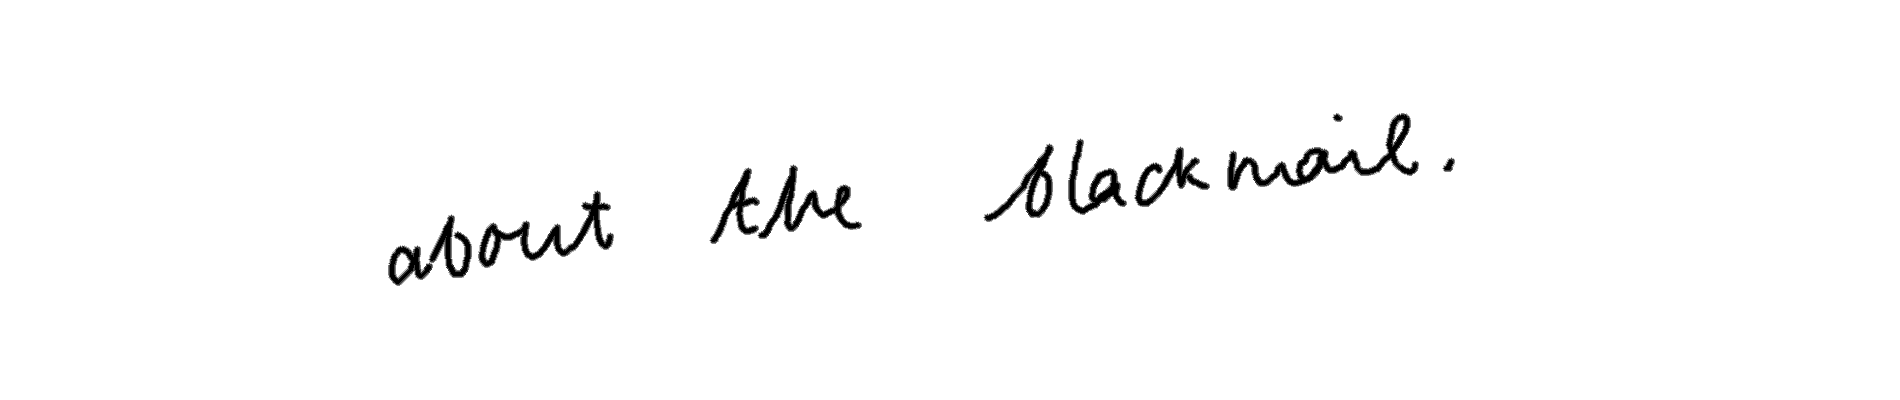 about the blackmail.